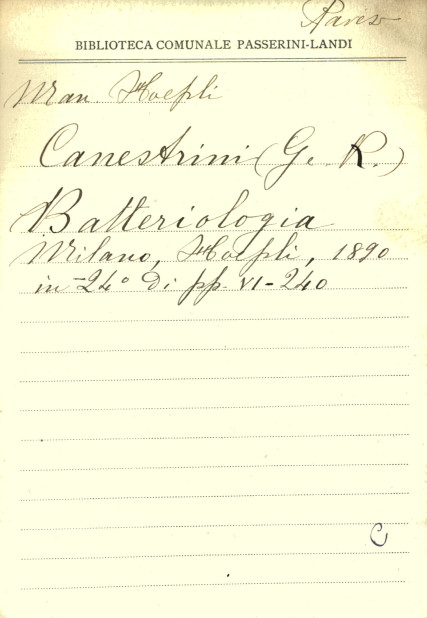 BIBLIOTECA COMUNALE PASSERINI-LANDI
Man Hoepli
Canestrini (G. R.)
Batteriologia
Milano, Hoepli, 1890
in-24° di pp. VI-240
C